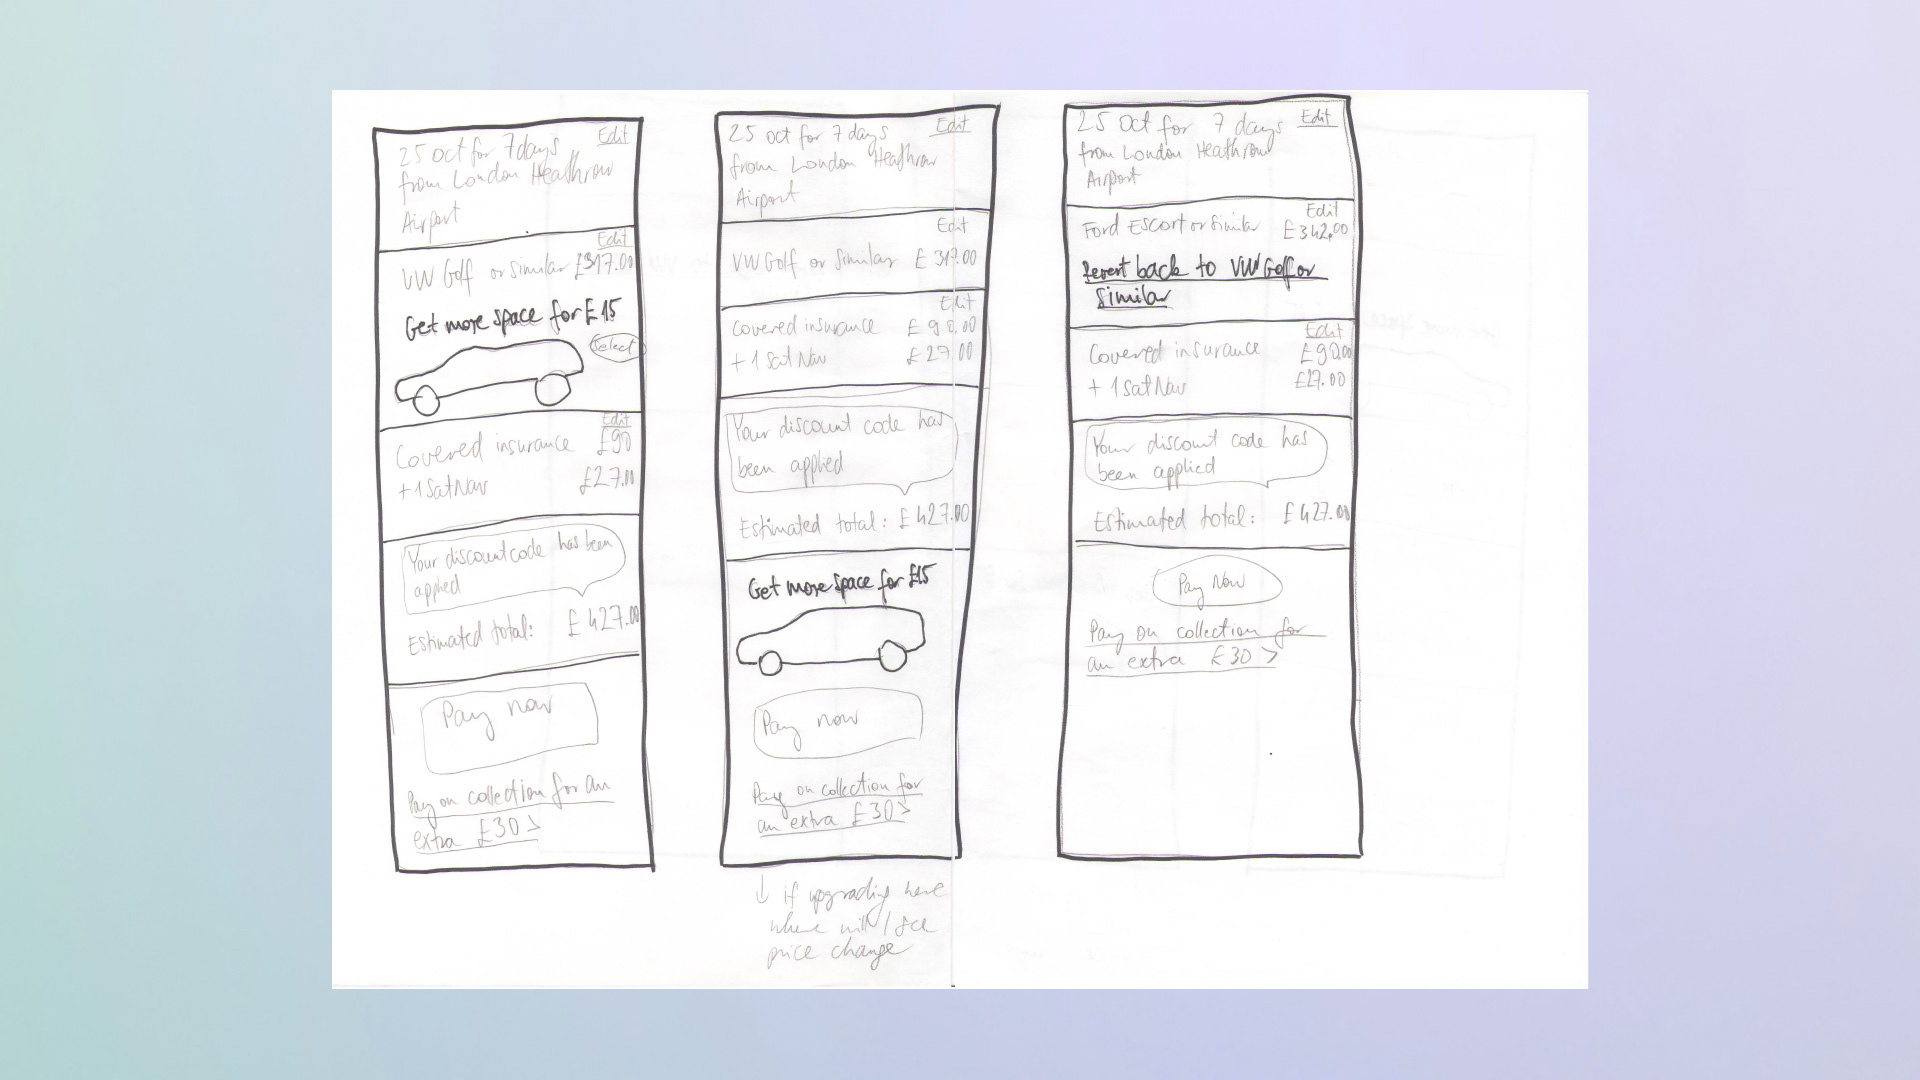 25 Oct for 7 days
Edit
from London Heathrow
Airport
Edit
VW Golf or similar £317.00
Get more space for £15
Select
Edit
Covered insurance £90
+ 1 Sat Nav £27.00
Your discount code has been
applied
Estimated total: £427.00
Pay now
Pay on collection for an
extra £30 >
25 Oct for 7 days
Edit
from London Heathrow
Airport
Edit
VW Golf or similar £317.00
Edit
Covered insurance £90.00
+ 1 Sat Nav £27.00
Your discount code has
been applied
Estimated total: £427.00
Get more space for £15
Pay now
Pay on collection for
an extra £30 >
↓ if upgrading here
where will I see
price change
25 Oct for 7 days
Edit
from London Heathrow
Airport
Edit
Ford Escort or similar £342.00
Revert back to VW Golf or
similar
Edit
Covered insurance £90.00
+ 1 Sat Nav £27.00
Your discount code has
been applied
Estimated total: £427.00
Pay Now
Pay on collection for
an extra £30 >